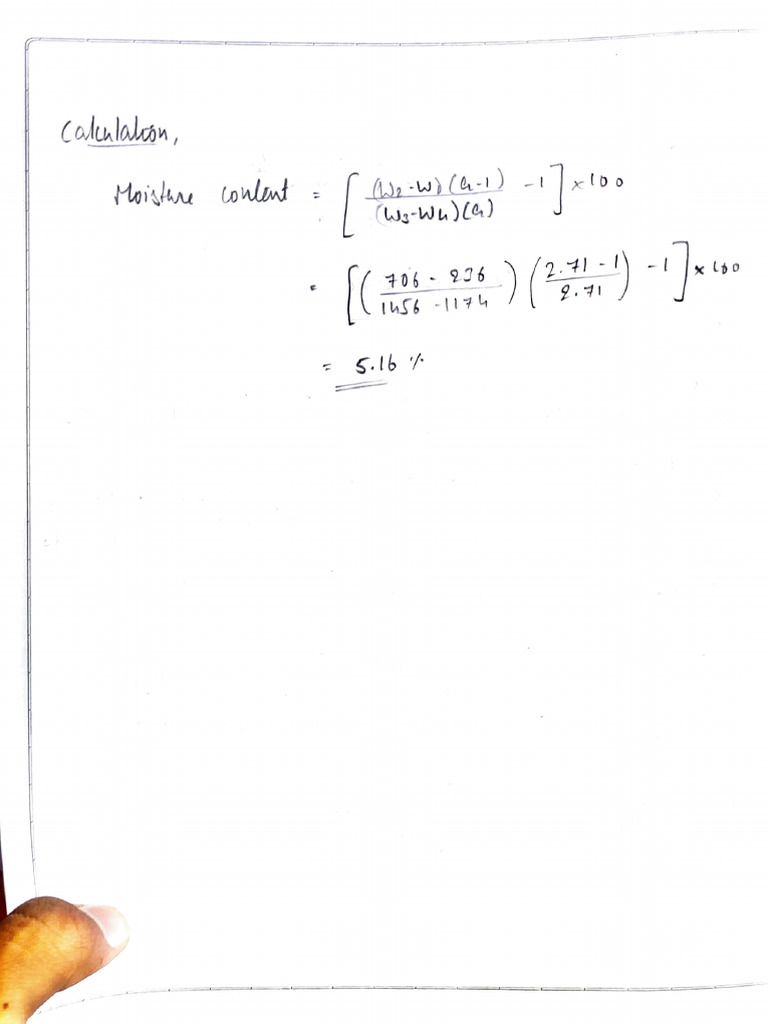 Calculation,
Moisture content = [ (W2-W1)(G-1) / (W3-W4)(G) -1 ] × 100
= [ ( 706 - 236 / 1456 - 1174 ) ( 2.71 - 1 / 2.71 ) - 1 ] × 100
= 5.16 %